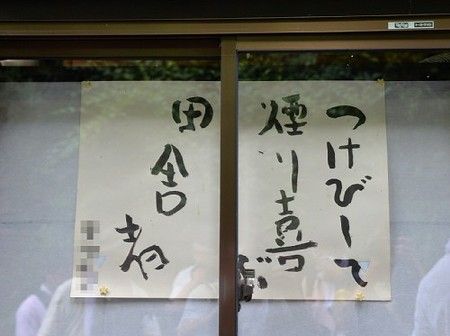 つけびして
煙り喜ぶ
田舎者